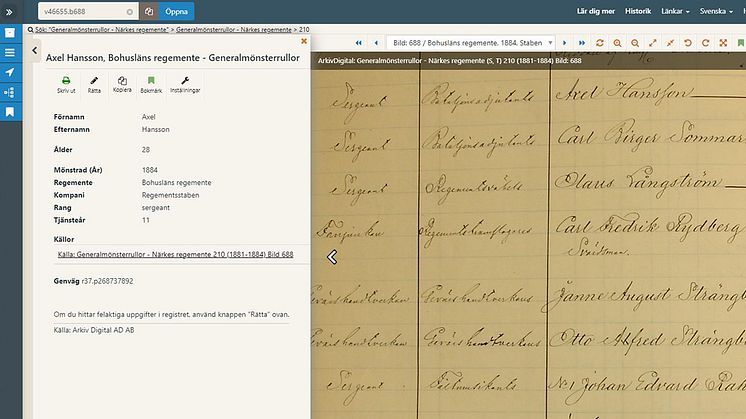 v46655.b688
Öppna
Lär dig mer
Historik
Länkar
Svenska
Sök: "Generalmönsterrullor - Närkes regemente" > Generalmönsterrullor - Närkes regemente > 210
Bild: 688 / Bohusläns regemente. 1884. Staben
Axel Hansson, Bohusläns regemente - Generalmönsterrullor
Skriv ut
Rätta
Kopiera
Bokmärk
Inställningar
Förnamn Axel
Efternamn Hansson
Ålder 28
Mönstrad (År) 1884
Regemente Bohusläns regemente
Kompani Regementsstaben
Rang sergeant
Tjänsteår 11
Källor
Källa: Generalmönsterrullor - Närkes regemente 210 (1881-1884) Bild 688
Genväg r37.p268737892
Om du hittar felaktiga uppgifter i registret, använd knappen "Rätta" ovan.
Källa: Arkiv Digital AD AB
ArkivDigital: Generalmönsterrullor - Närkes regemente (S, T) 210 (1881-1884) Bild: 688
Sergeant Bataljonsadjutants Axel Hansson
Sergeant Bataljonsadjutants Carl Birger Sommar
Sergeant Olaus Långström
Fanjunkare Carl Fredrik Rydberg
Svärdsman
Gevärshandtverkare Gevärshandtverkares Janne August Strängb
Gevärshandtverkare Gevärshandtverkares Otto Alfred Strängb
Sergeant Fältmusikants No 1 Johan Edvard